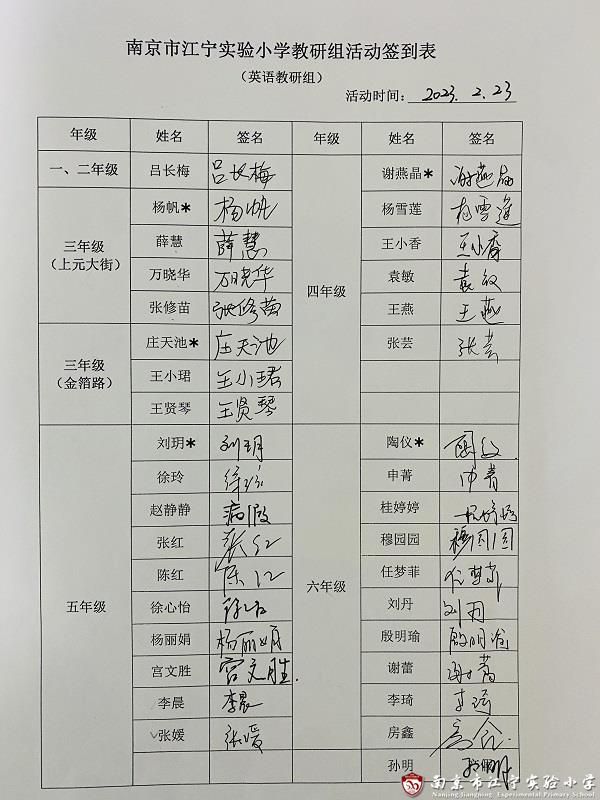 南京市江宁实验小学教研组活动签到表
（英语教研组）
活动时间: 2023. 2. 23
年级 姓名 签名 年级 姓名 签名
一、二年级 吕长梅 吕长梅 四年级 谢燕晶* 谢燕晶
三年级（上元大街） 杨帆* 杨帆 杨雪莲 杨雪莲
薛慧 薛慧 王小香 王小香
万晓华 万晓华 袁敏 袁敏
张修苗 张修苗 王燕 王燕
三年级（金箔路） 庄天池* 庄天池 张芸 张芸
王小珺 王小珺
王贤琴 王贤琴
五年级 刘玥* 刘玥 六年级 陶仪* 陶仪
徐玲 徐玲 申菁 申菁
赵静静 病假 桂婷婷 桂婷婷
张红 张红 穆园园 穆园园
陈红 陈红 任梦菲 任梦菲
徐心怡 刘丹 刘丹
杨丽娟 杨丽娟 殷明瑜 殷明瑜
宫文胜 宫文胜 谢蕾 谢蕾
李晨 李晨 李琦 李琦
张媛 张媛 房鑫
孙明 孙明
南京市江宁实验小学
Nanjing Jiangning Experimental Primary School